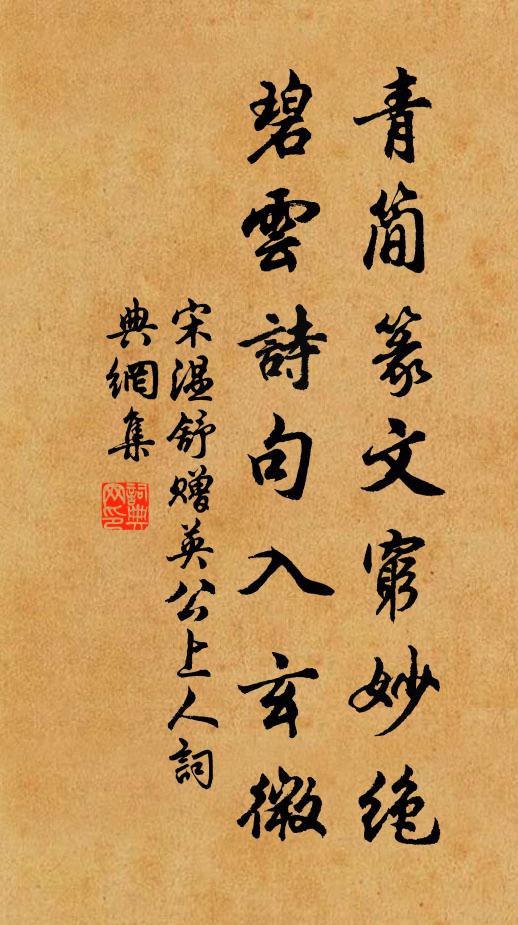 青简篆文穷妙绝
碧雲詩句入玄微
宋温舒赠英公上人詞
典網集
詞典网印